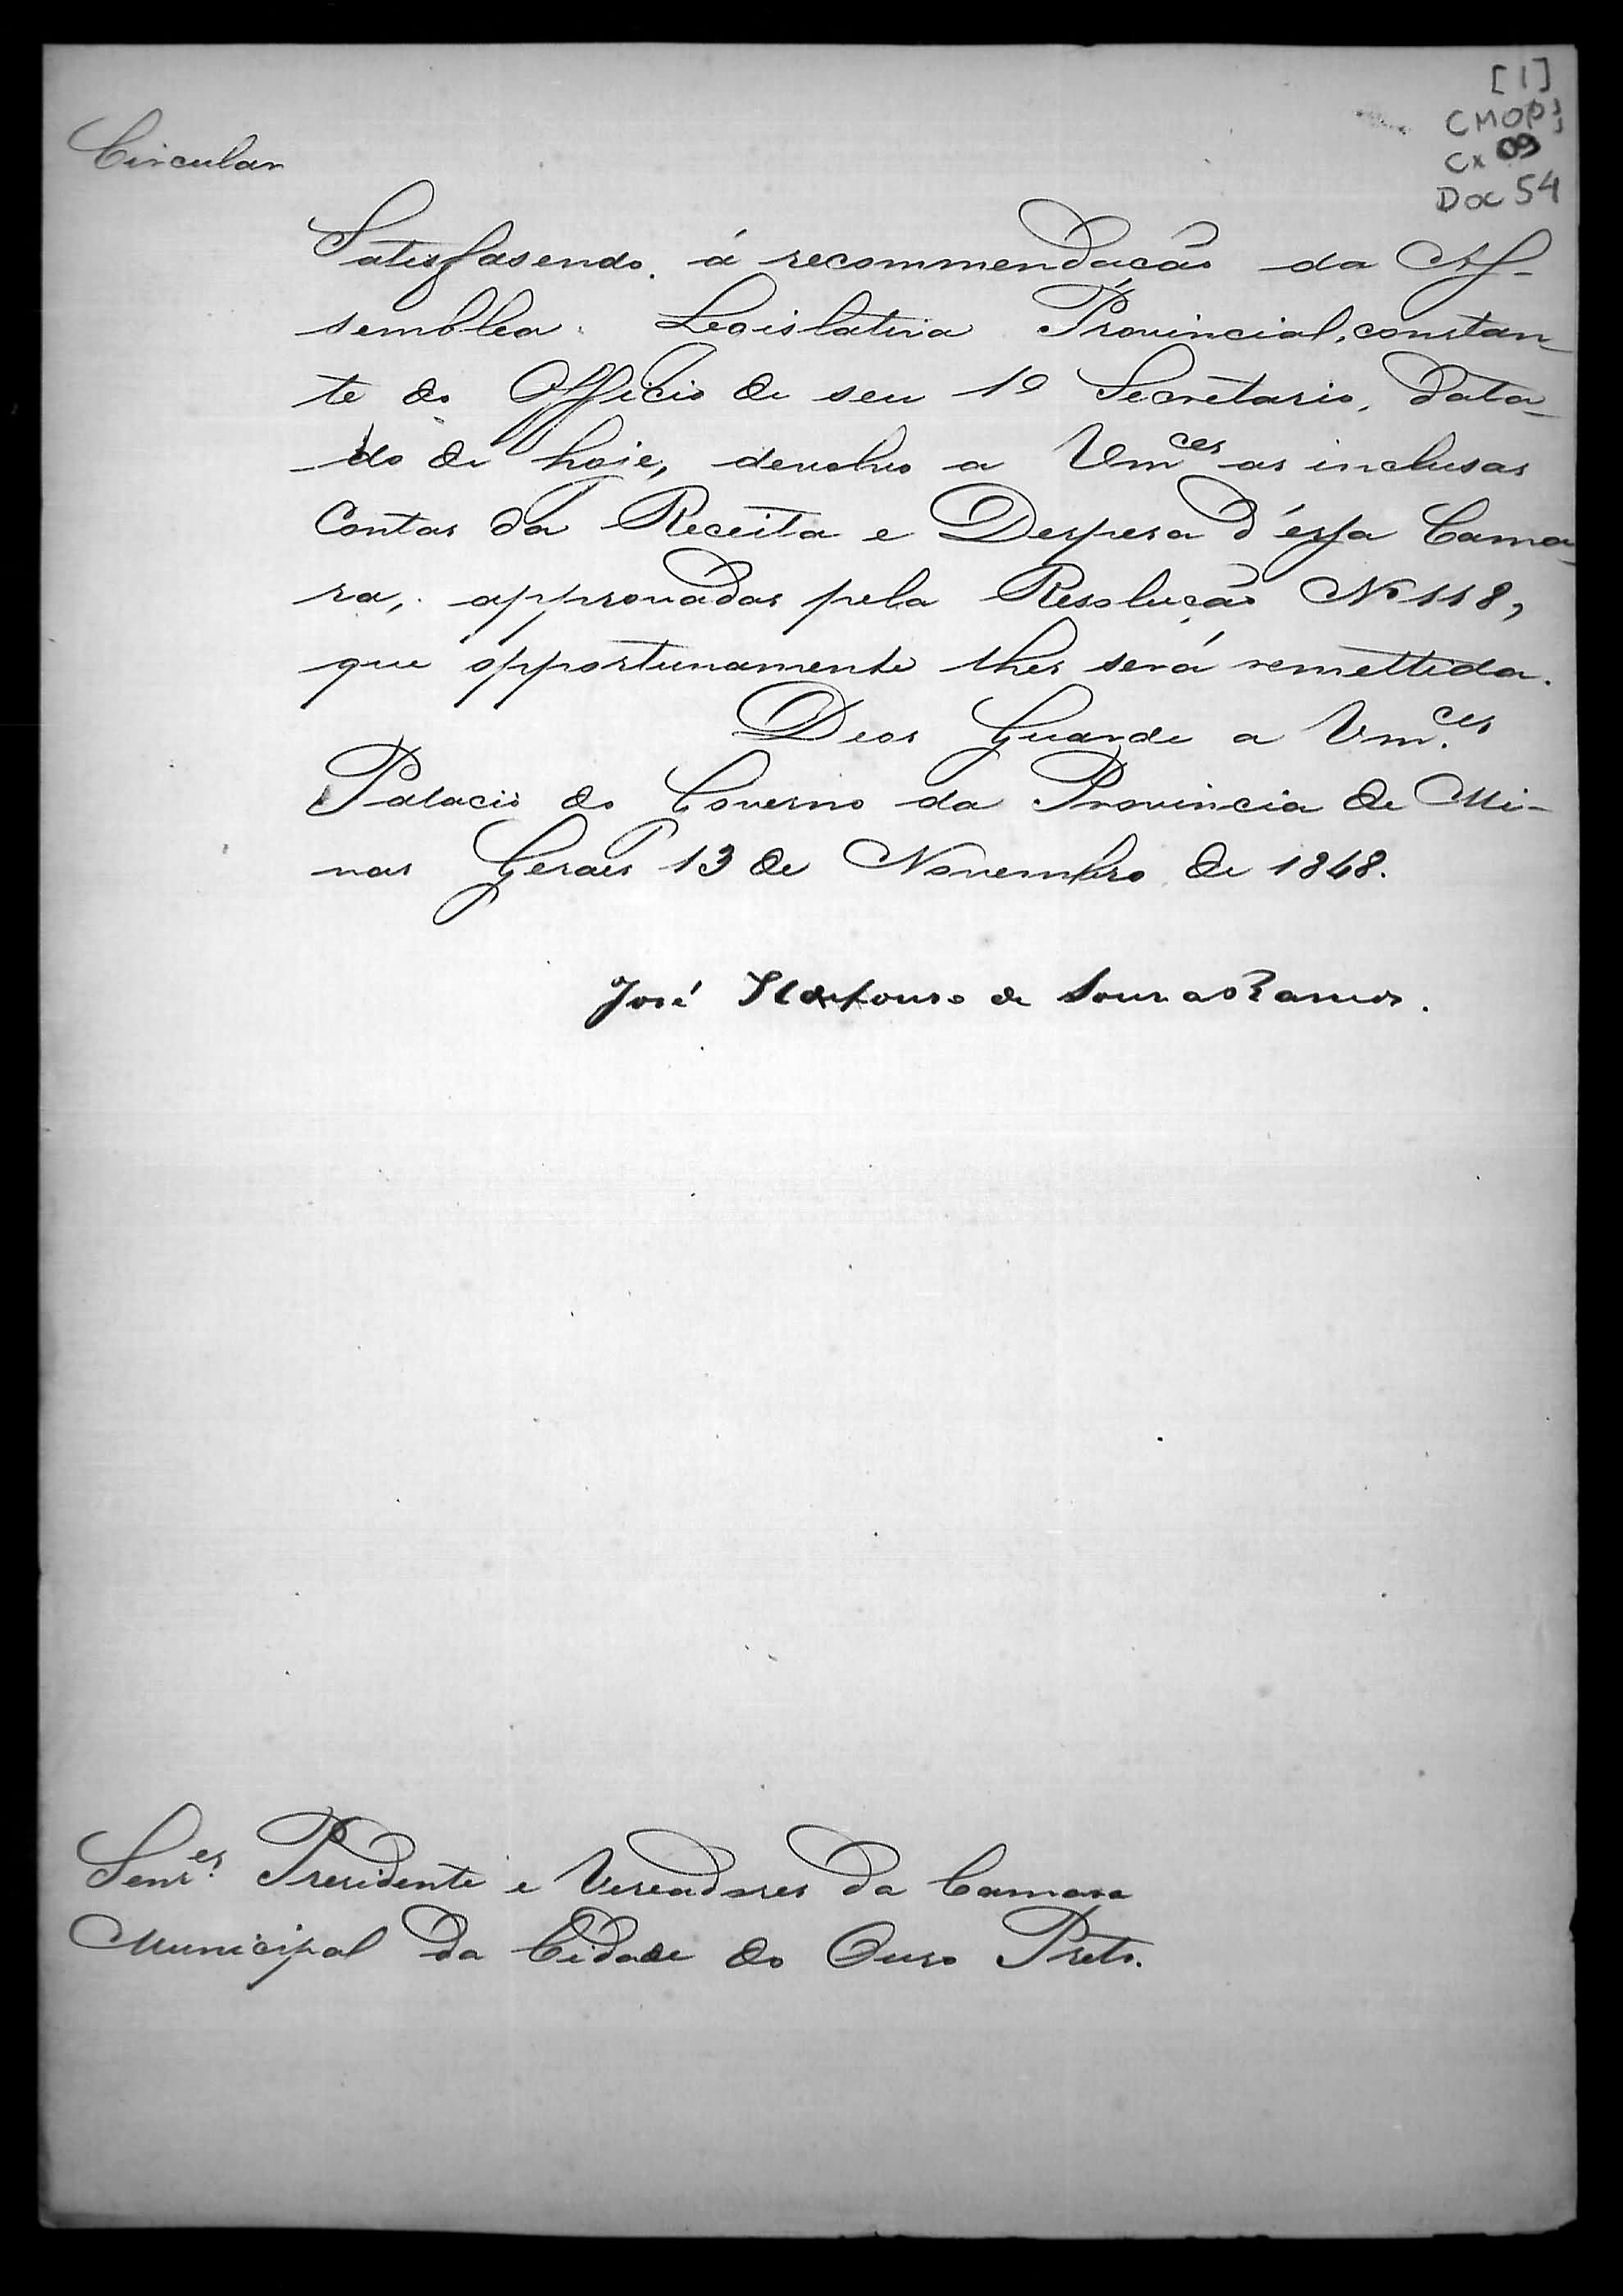 [1]
CMOP J
Cx 09
Doc 54
Circular
Satisfasendo á recommendação da As-
semblea Legislativa Provincial, constan-
te do Officio de seu 1º Secretario, data-
do de hoje, devolvo a Vm^ces as inclusas
Contas da Receita e Despesa d'essa Cama-
ra, approvadas pela Resolução Nº 118,
que opportunamente lhes será remettida.
Deos Guarde a Vm.^ces
Palacio do Governo da Provincia de Mi-
nas Geraes 13 de Novembro de 1848.
José Ildefonso de Sousa Ramos.
Senr^es. Presidente e Vereadores da Camara
Municipal da Cidade do Ouro Preto.